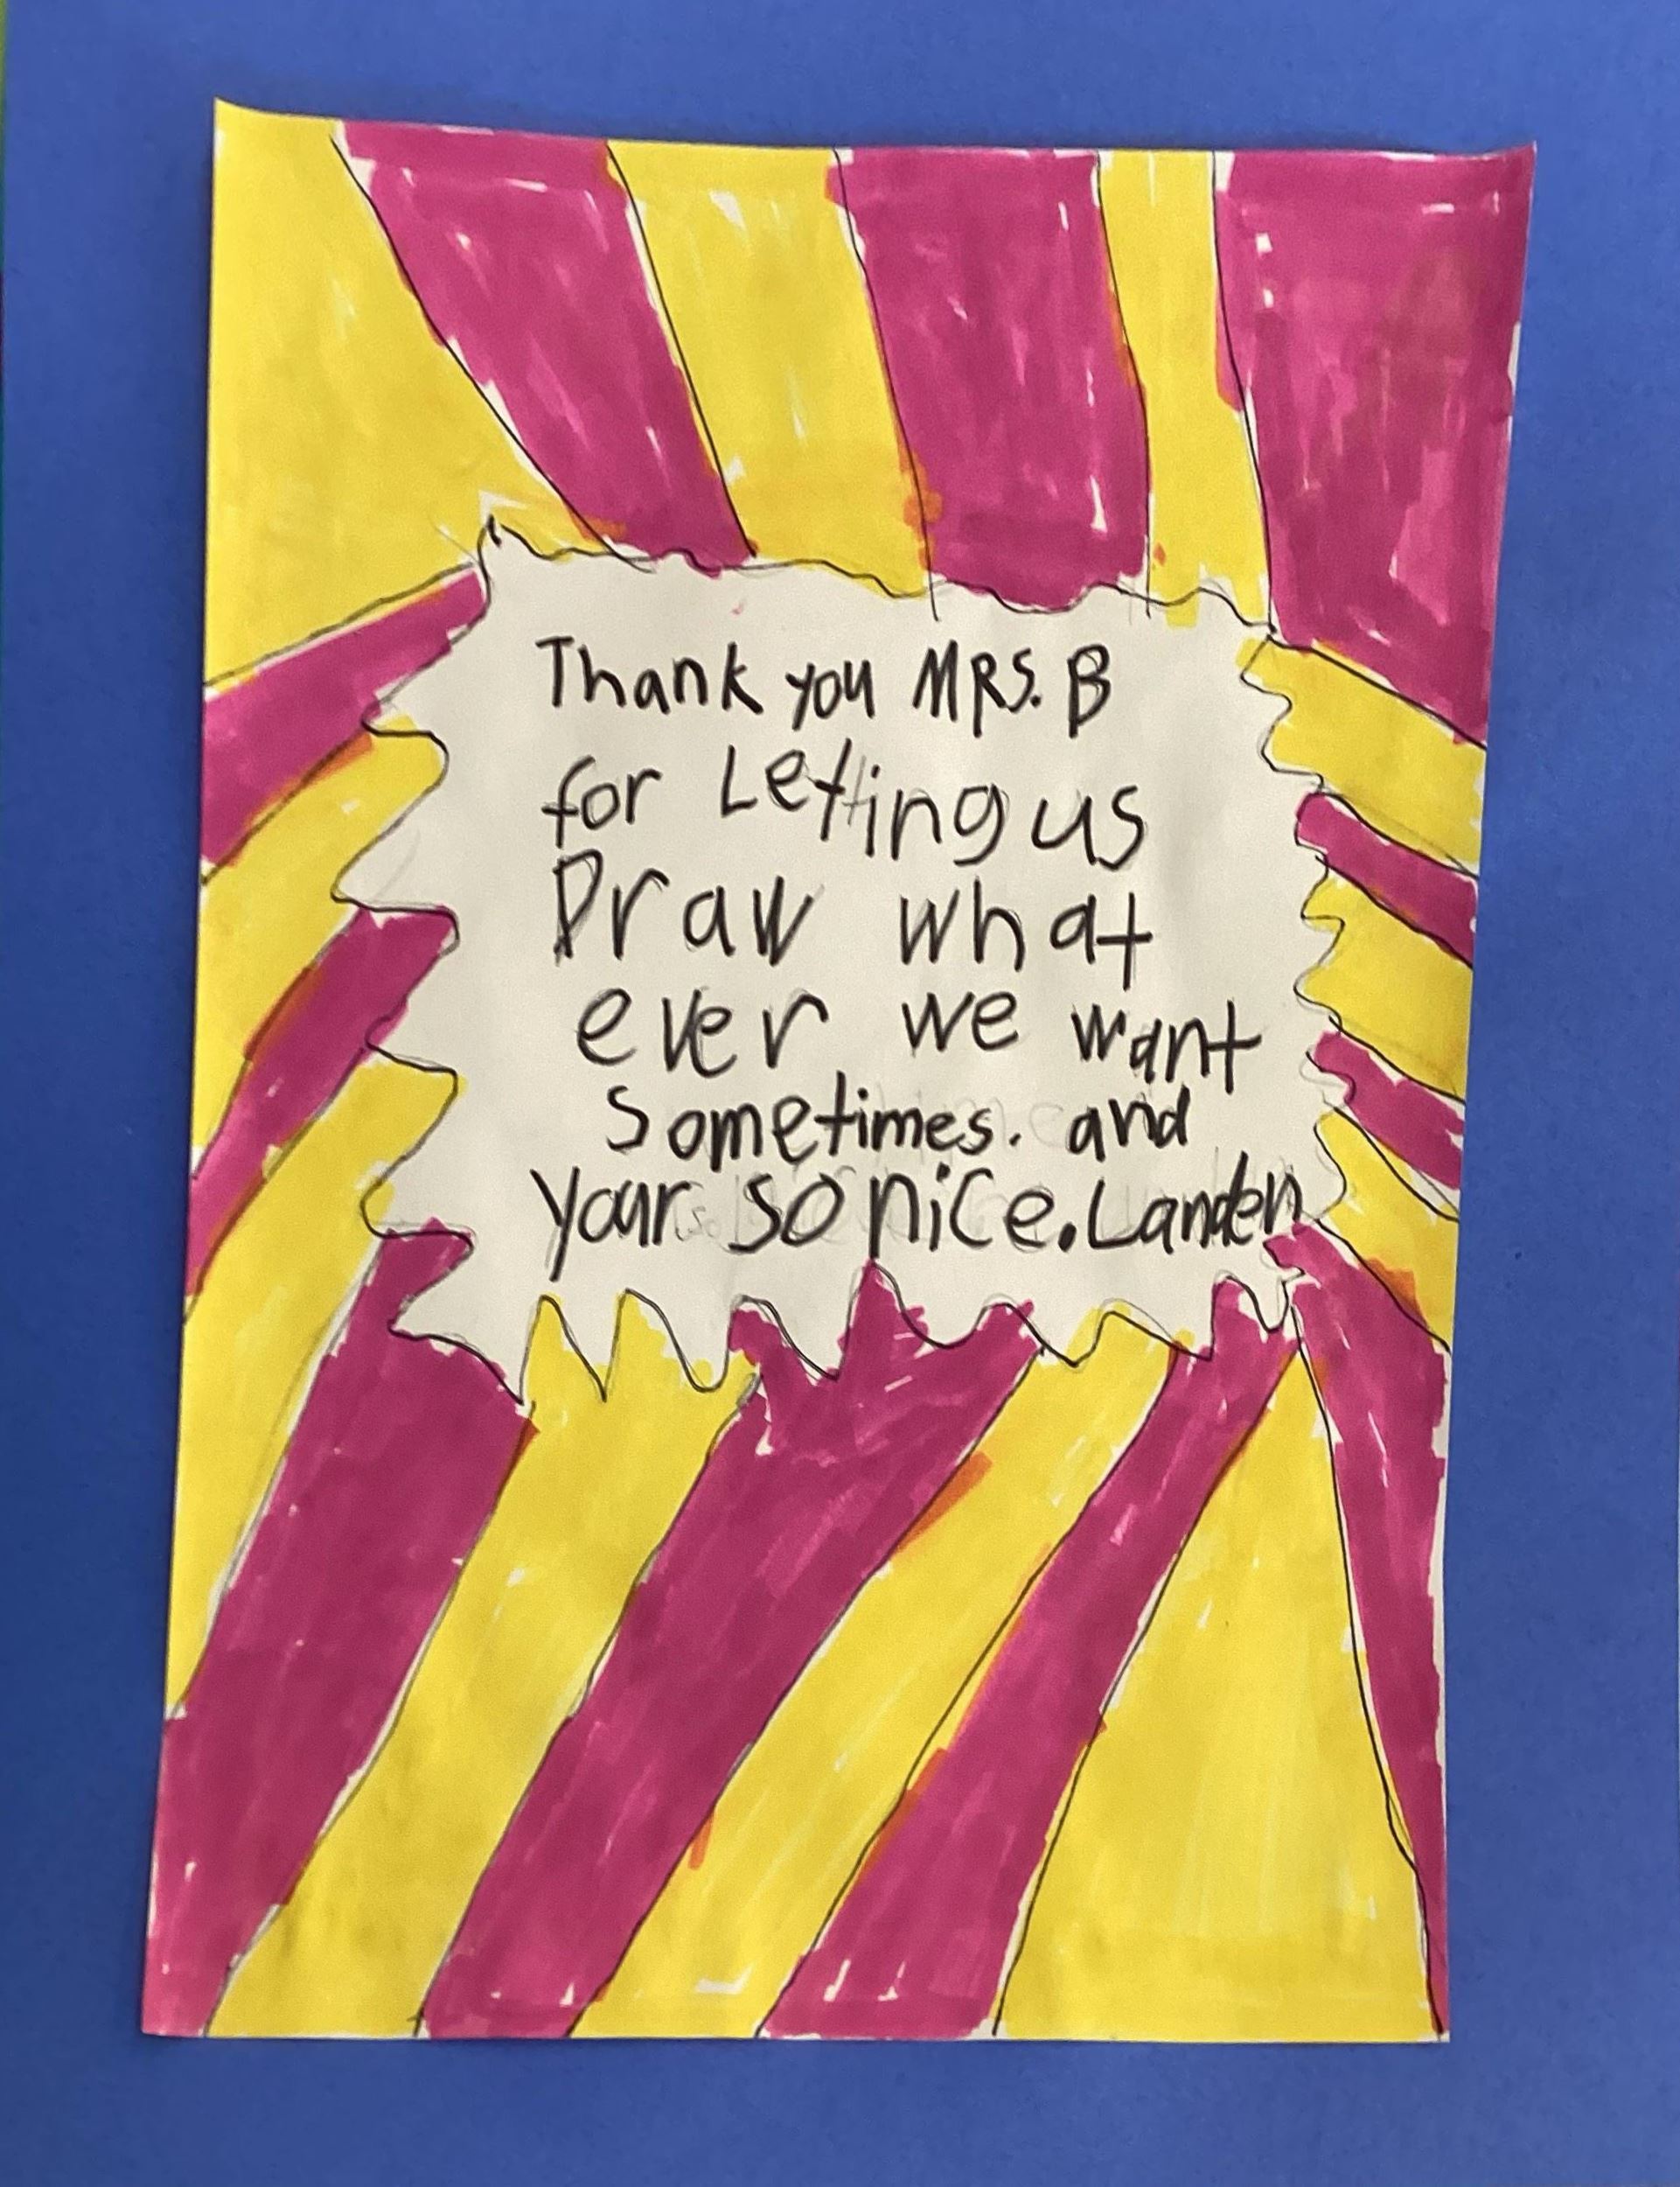 Thank you MRS. B
for Letting us
Draw what
ever we want
Sometimes. and
your so nice. Landen